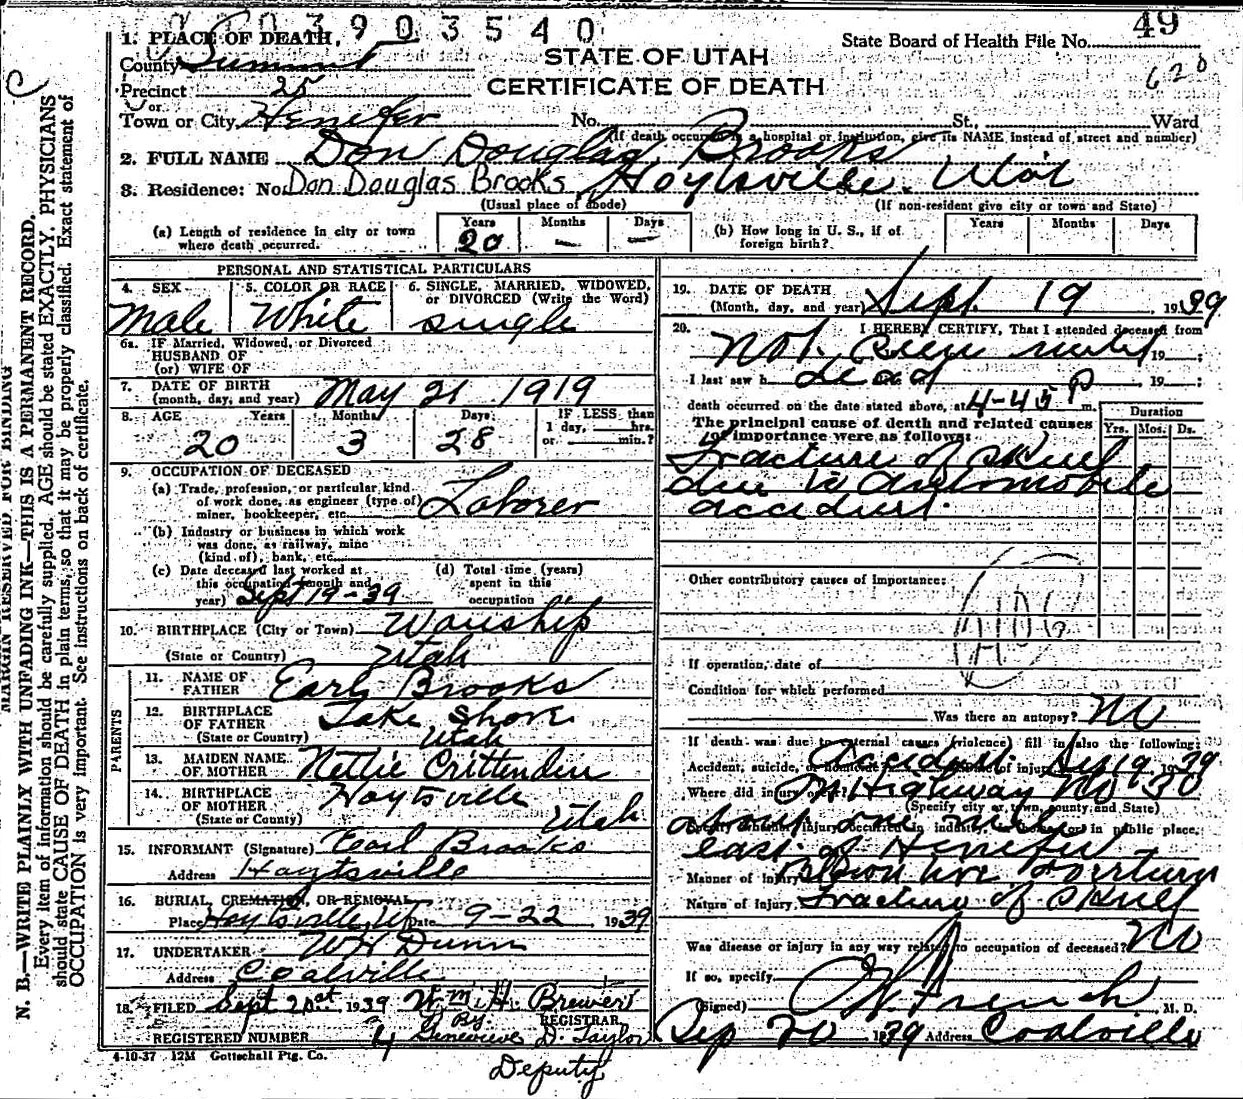 03903540
49
1. PLACE OF DEATH,
County Summit
STATE OF UTAH
State Board of Health File No.
Precinct 25
CERTIFICATE OF DEATH
620
or
Town or City Henefer No. St., Ward
(If death occurred in a hospital or institution, give its NAME instead of street and number)
2. FULL NAME Don Douglas Brooks
3. Residence: No. Don Douglas Brooks Hoytsville. Utah
(Usual place of abode) (If non-resident give city or town and State)
(a) Length of residence in city or town where death occurred. Years 20 Months — Days —
(b) How long in U. S., if of foreign birth? Years Months Days
PERSONAL AND STATISTICAL PARTICULARS
4. SEX Male
5. COLOR OR RACE White
6. SINGLE, MARRIED, WIDOWED, or DIVORCED (Write the Word) single
6a. IF Married, Widowed, or Divorced
HUSBAND OF
(or) WIFE OF
7. DATE OF BIRTH
(month, day, and year) May 21 1919
8. AGE Years Months Days IF LESS than
1 day, hrs.
or min.?
20 3 28
9. OCCUPATION OF DECEASED
(a) Trade, profession, or particular kind
of work done, as engineer (type of)
miner, bookkeeper, etc. Laborer
(b) Industry or business in which work
was done, as railway, mine
(kind of), bank, etc.
(c) Date deceased last worked at
this occupation (month and
year) Sept 19-39
(d) Total time (years)
spent in this
occupation
10. BIRTHPLACE (City or Town) Wanship
(State or Country) Utah
PARENTS
11. NAME OF
FATHER Earl Brooks
12. BIRTHPLACE
OF FATHER Lake Shore
(State or Country) Utah
13. MAIDEN NAME
OF MOTHER Nettie Crittenden
14. BIRTHPLACE
OF MOTHER Hoytsville
(State or Country) Utah
15. INFORMANT (Signature) Earl Brooks
Address Hoytsville
16. BURIAL, CREMATION, OR REMOVAL
Place Hoytsville, Ut Date 9-22, 1939
17. UNDERTAKER W H Dunn
Address Coalville
18. FILED Sept 20st 1939 Wm. H. Brewer
REGISTRAR
By
REGISTERED NUMBER 4 Genevieve D. Taylor
Deputy
4-10-37 12M Gottschall Ptg. Co.
19. DATE OF DEATH
(Month, day, and year) Sept. 19 1939
20. I HEREBY CERTIFY, That I attended deceased from
Not seen until 19 ;
I last saw h dead , 19 ;
death occurred on the date stated above, at 4-45 P m.
The principal cause of death and related causes
of importance were as follows:
Duration
Yrs. Mos. Ds.
Fracture of skull
due to automobile
accident.
Other contributory causes of importance:
If operation, date of
Condition for which performed
Was there an autopsy? No
If death was due to external causes (violence) fill in also the following:
Accident, suicide, or homicide Accident. Date of injury Sep 19 1939
Where did injury occur? On Highway No 30
(Specify city or town, county and State)
Specify whether injury occurred in industry, in home, or in public place.
about one mile
east of Henefer
Manner of Injury Blown tire & overturn
Nature of Injury Fracture of Skull
Was disease or injury in any way related to occupation of deceased? No
If so, specify
(Signed) French, M. D.
Sep 20 1939 Address Coalville
MARGIN RESERVED FOR BINDING
N. B.—WRITE PLAINLY WITH UNFADING INK—THIS IS A PERMANENT RECORD.
Every item of information should be carefully supplied. AGE should be stated EXACTLY. PHYSICIANS
should state CAUSE OF DEATH in plain terms, so that it may be properly classified. Exact statement of
OCCUPATION is very important. See instructions on back of certificate.